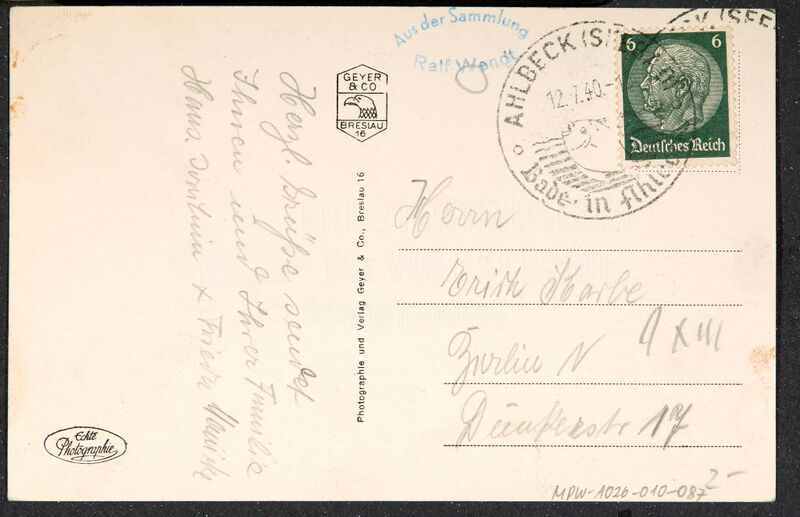 Aus der Sammlung
Ralf Wendt
GEYER
& CO
BRESLAU
16
AHLBECK (SEE
12.7.40.-1
Bade in Ahlbe
CK (SEE
6 6
Deutsches Reich
Herzl. Grüße sendet
Ihnen und Ihrer Familie
Hans. & Frieda
Photographie und Verlag Geyer & Co., Breslau 16
Herrn
Erich Karbe
Berlin N
17
Echte
Photographie
MPW-1026-010-087
2-